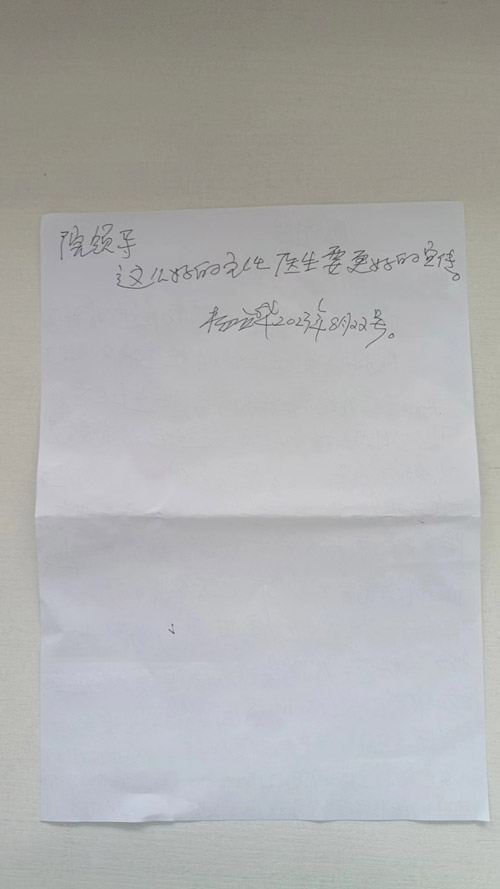 院领导
这么好的主任医生要更好的宣传。
2023年8月22号。